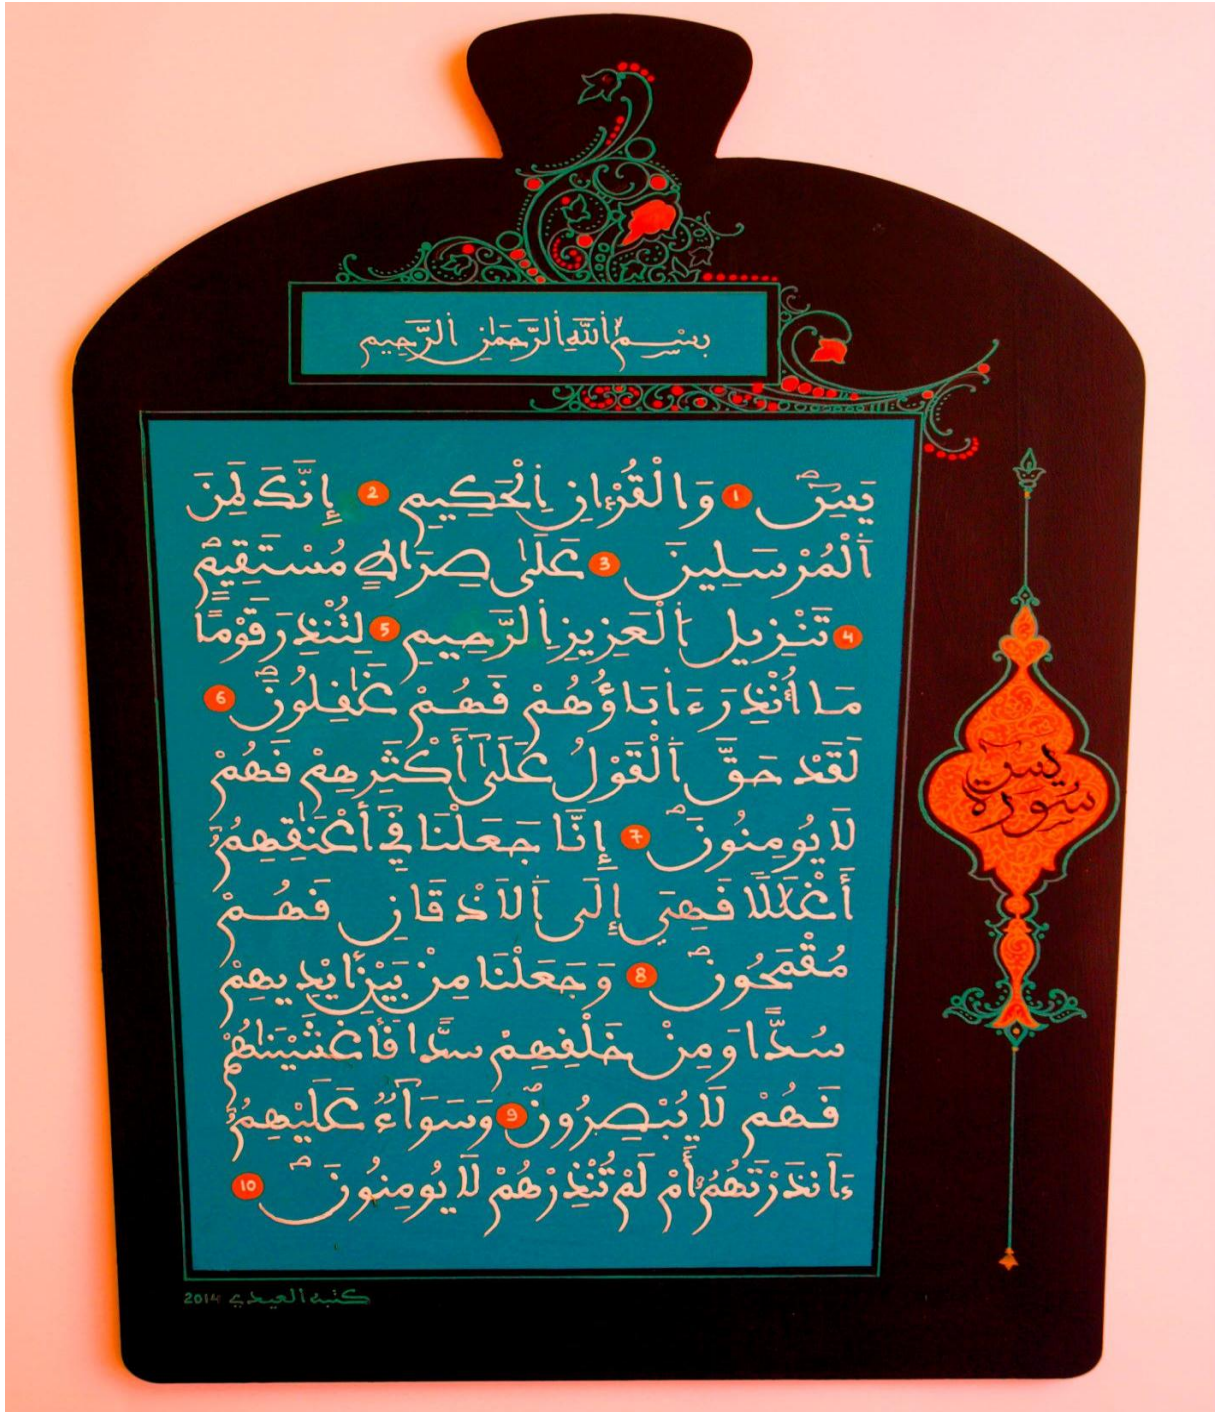 بِسْمِ اللَّهِ الرَّحْمَٰنِ الرَّحِيمِ
يَسِٓ 1 وَالْقُرْءَانِ اِلْحَكِيمِ 2 إِنَّكَ لَمِنَ
اَلْمُرْسَلِينَ 3 عَلَىٰ صِرَاطٍ مُسْتَقِيمٍ
4 تَنْزِيل اُلْعَزِيزِ اِلرَّحِيمِ 5 لِتُنْذِرَ قَوْمًا
مَا أُنْذِرَ ءَابَاؤُهُمْ فَهُمْ غَٰفِلُونَ 6
لَقَدْ حَقَّ اَلْقَوْلُ عَلَىٰ أَكْثَرِهِمْ فَهُمْ
لَا يُومِنُونَ 7 إِنَّا جَعَلْنَا فِي أَعْنَٰقِهِمُ
أَغْلَٰلًا فَهِيَ إِلَى اَلَاذْقَانِ فَهُمْ
مُقْمَحُونَ 8 وَجَعَلْنَا مِنْ بَيْنِ أَيْدِيهِمْ
سُدًّا وَمِنْ خَلْفِهِمْ سُدًّا فَأَغْشَيْنَٰهُمْ
فَهُمْ لَا يُبْصِرُونَ 9 وَسَوَآءٌ عَلَيْهِمُ
ءَآنذَرْتَهُمُ أَمْ لَمْ تُنْذِرْهُمْ لَا يُومِنُونَ 10
سُورة يس
كتبه العيدي 2014